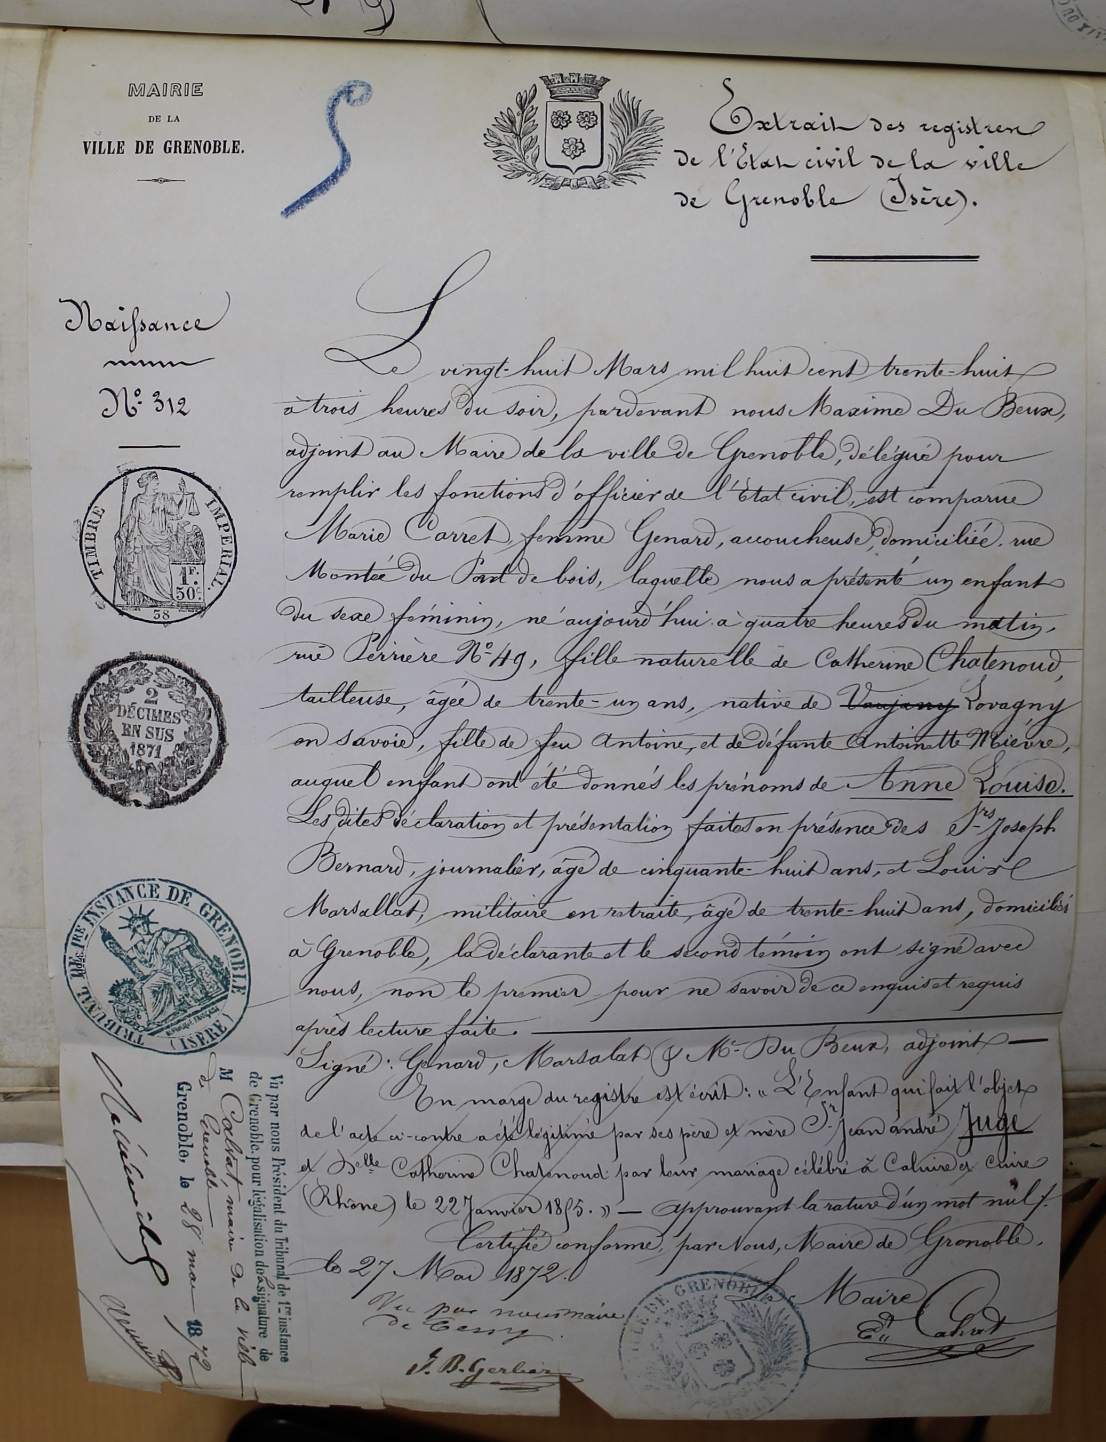 MAIRIE
DE LA
VILLE DE GRENOBLE.
Extrait des registres
de l'État civil de la ville
de Grenoble (Isère).
Naissance
N° 312
TIMBRE IMPERIAL.
1F. 50c.
38
2
DÉCIMES
EN SUS
1871
TRIBUNAL DE 1re INSTANCE DE GRENOBLE
(ISÈRE)
Le vingt-huit Mars mil huit cent trente-huit
à trois heures du soir, pardevant nous Maxime Du Beux,
adjoint au Maire de la ville de Grenoble, délégué pour
remplir les fonctions d'officier de l'État civil, est comparue
Marie Carret, femme Genard, accoucheuse, domiciliée, rue
Montée du Pont de bois, laquelle nous a présenté un enfant
du sexe féminin, né aujourd'hui à quatre heures du matin,
rue Perrière N° 49, fille naturelle de Catherine Chatenoud,
tailleuse, âgée de trente-un ans, native de Vaujany Lovagny
en Savoie, fille de feu Antoine, et de défunte Antoinette Mièvre,
auquel enfant ont été donnés les prénoms de Anne Louise.
Les dites déclaration et présentation faites en présence des Srs Joseph
Bernard, journalier, âgé de cinquante-huit ans, et Louis
Marsallat, militaire en retraite, âgé de trente-huit ans, domiciliés
à Grenoble, la déclarante et le second témoin ont signé avec
nous, non le premier pour ne savoir de ce enquis et requis
après lecture faite.
Signé: Genard, Marsalat & Mr Du Beux, adjoint
En marge du registre est écrit: « L'Enfant qui fait l'objet
de l'acte ci-contre a été légitimé par ses père et mère Sr Jean André Juge
et Delle Catherine Chatenoud par leur mariage célébré à Caluire et Cuire
(Rhône) le 22 Janvier 1855. » — approuvant la rature d'un mot nul.
Certifié conforme, par Nous, Maire de Grenoble,
le 27 Mai 1872.
Le Maire
Ed. Calvat
Vu par nous maire
de
J. B. Gerbier
VILLE DE GRENOBLE
Vu par nous Président du Tribunal de 1re instance
de Grenoble, pour légalisation de la signature de
M Calvat maire de la ville
de Grenoble
Grenoble, le 28 mai 1872